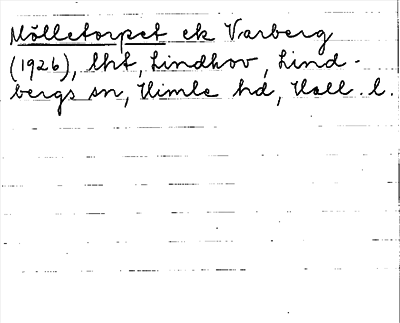 Mölletorpet ek Varberg
(1926), lht, Lindhov, Lind-
bergs sn, Himle hd, Hall. l.